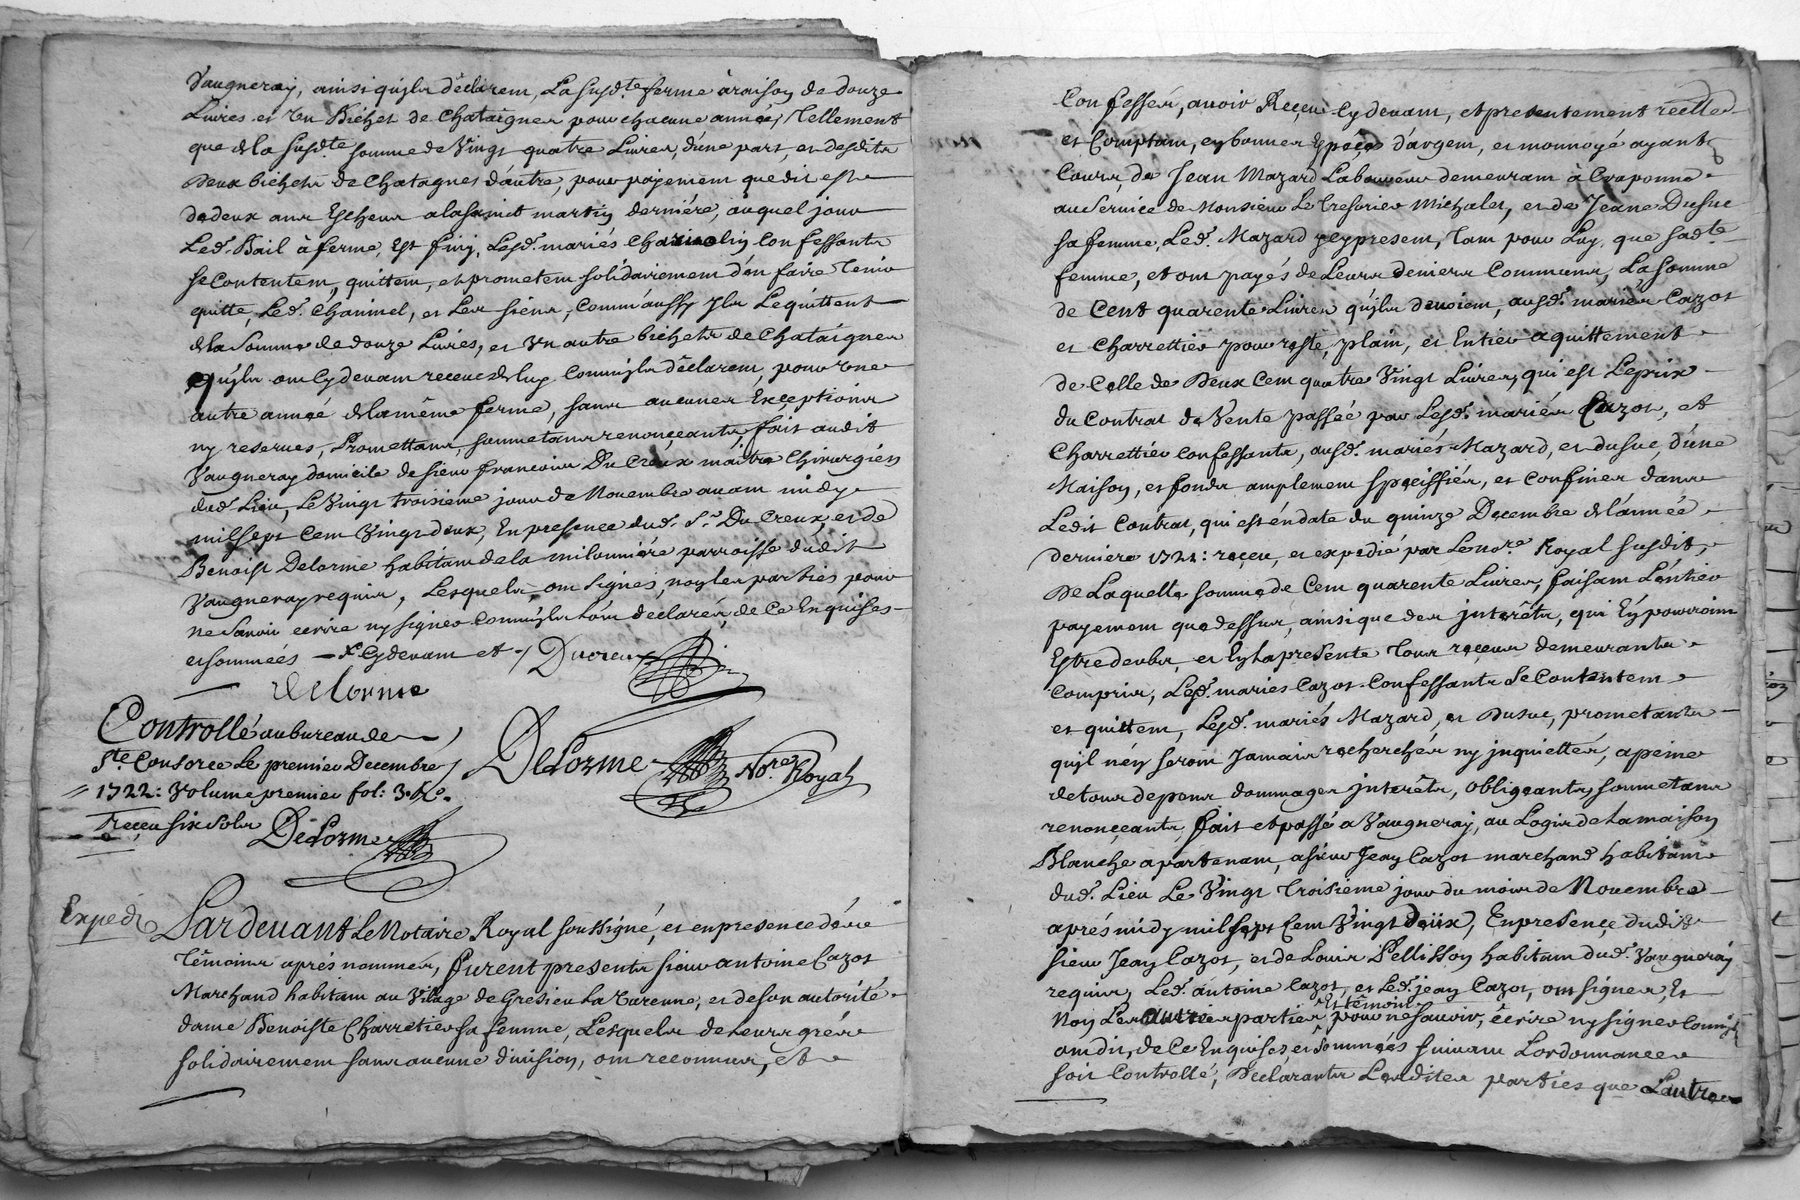 Vaugneray, ainsi quils déclarent, La susd.te ferme à raison de douze
Livres et un Bichet de Chataignes pour chacune année, Tellement
que de la susd.te somme de vingt quatre Livres, d'une part, et desdits
Deux bichets de Chatagnes d'autre, pour payement que dit est
de deux ans Escheus a la saint martin derniére, auquel jour
Led. Bail à ferme, Est finy, Lesd. mariés Confessants
se Contentent, quittent, et prometent solidairement d'en faire Tenir
quitte, Led. Chaninel, et Les siens, Comm'aussy Ils Lequittent
de la Somme de douze Livres, et Un autre bichets de Chataignes
quils ont Cydevant receues de luy Comm'ils déclarent, pour une
autre année de la même ferme, sans aucunes Exceptions
ny reserves, Promettans, soumetans renonçeants, fait audit
Vaugneray domicile de sieur francois Du Creux maitre Chirurgien
dud. Lieu, Le Vingt troisieme jour de Novembre avant midy
mil sept Cent Vingt deux, En presence dud. S.r Du Creux, et de
Benoist Delorme habitant de la milonniére parroisse dudit
Vaugneray requis, Lesquels, ont signés, non les parties pour
ne savoir écrire ny signer Comm'ils l'ont déclarés, de Ce Enquises
et sommées Cydevant et Ducreux
delorme
Controllé au bureau de
Ste. Consorce Le premier Decembre
1722: Volume premier fol: 3.
Reçeu six sols Delorme
Delorme No.re Royal
Expedié
Pardevant Le Notaire Royal soussigné, et en presence des
Témoins aprés nommés, furent presents sieur antoine Cazot
Marchand habitant au Vilage de Gresieu La Varenne, et de son autorité
dame Benoiste Charretier sa femme, Lesquels de leurs grés
solidairement sans aucune division, ont reconnus, et
Confessés, avoir Reçeu Cydevant, et presentement réelle
et Comptant, en bonnes Espéces d'argent, et monnoyé ayant
Cours, de Jean Mazard Laboureur demeurant à Craponne
au Service de Monsieur Le Tresorier Michalet, et de Jeane Dusuc
sa femme, Led. Mazard y present, Tant pour Luy, que sad.te
femme, et ont payés de Leurs deniers Communs, La somme
de Cent quarente Livres qu'ils devoient, ausd. mariés Cazot
et Charrettier pour reste, plain, et Entier aquittement
de Celle de Deux Cent quatre Vingt Livres, qui est Le prix
du Contrat de Vente passée par Lesd. mariés Cazot, et
Charrettier Confessants, ausd. mariés Mazard, et dusuc, d'une
Maison, et fonds amplement speciffiés, et Confinés dans
Ledit Contrat, qui est en date du quinze Decembre de l'année
derniere 1721: reçeu, et expedié par Le no.re Royal susdit,
De Laquelle somme de Cent quarente Livres, faisant L'entier
payement que dessus, ainsi que des interêts, qui En pourroint
Estre deubs, et En La presente Tous reçeus demeurants
Compris, Lesd. mariés Cazot Confessants Se Contentent
et quittent, Lesd. mariés Mazard, et Dusuc, prometants
qu'il n'en seront Jamais recherchés ny inquiettés, a peine
de tous depens dommages interêts, obligeants, soumetans
renonçeants, fait et passé a Vaugneray, au Logis de La maison
Blanche apartenant, a sieur Jean Cazot marchand habitant
dud. Lieu Le Vingt Troisieme jour du mois de Novembre
aprés midy mil sept Cent Vingt deux, En presence dudit
sieur Jean Cazot, et de Louis Pellisson habitant dud. Vaugneray
requis, Led. antoine Cazot, et Led. jean Cazot, ont signés, Et
Non Les autres parties Et témoins pour ne savoir, écrire ny signer Comm'ils
ont dit, de Ce Enquises, et Sommées suivant Lordonnance
soit Controllé, Declarants Lesdites parties que L'autre